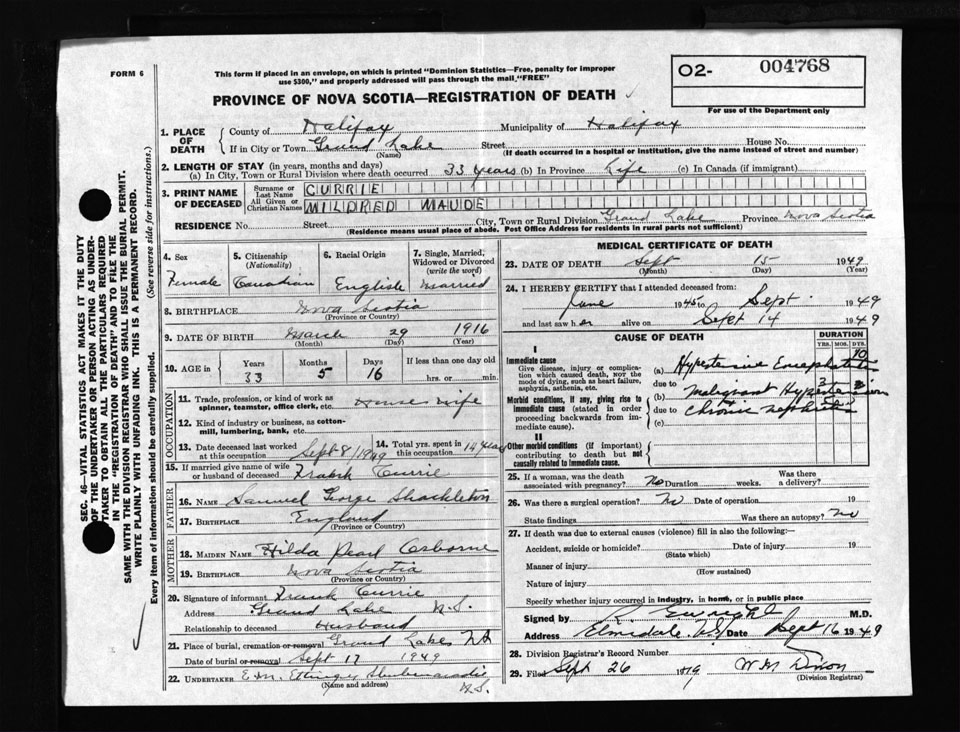 FORM 6
This form if placed in an envelope, on which is printed "Dominion Statistics—Free, penalty for improper
use $300," and properly addressed will pass through the mail, "FREE"
O2- 004768
For use of the Department only
PROVINCE OF NOVA SCOTIA—REGISTRATION OF DEATH
1. PLACE OF DEATH
County of Halifax Municipality of Halifax
If in City or Town Grand Lake Street House No.
(Name) (If death occurred in a hospital or institution, give the name instead of street and number)
2. LENGTH OF STAY (in years, months and days)
(a) In City, Town or Rural Division where death occurred 33 years (b) In Province Life (c) In Canada (if immigrant)
3. PRINT NAME OF DECEASED
Surname or Last Name CURRIE
All Given or Christian Names MILDRED MAUDE
RESIDENCE No. Street City, Town or Rural Division Grand Lake Province Nova Scotia
(Residence means usual place of abode. Post Office Address for residents in rural parts not sufficient)
4. Sex
Female
5. Citizenship (Nationality)
Canadian
6. Racial Origin
English
7. Single, Married, Widowed or Divorced (write the word)
Married
8. BIRTHPLACE Nova Scotia
(Province or Country)
9. DATE OF BIRTH March 29 1916
(Month) (Day) (Year)
10. AGE in Years Months Days If less than one day old
33 5 16 hrs. or min.
OCCUPATION
11. Trade, profession, or kind of work as
spinner, teamster, office clerk, etc. House wife
12. Kind of industry or business, as cotton-
mill, lumbering, bank, etc.
13. Date deceased last worked
at this occupation Sept 8/1949
14. Total yrs. spent in
this occupation 14 years
15. If married give name of wife
or husband of deceased Frank Currie
FATHER
16. NAME Samuel George Shackleton
17. BIRTHPLACE England
(Province or Country)
MOTHER
18. MAIDEN NAME Hilda Pearl Osborne
19. BIRTHPLACE Nova Scotia
(Province or Country)
20. Signature of informant Frank Currie
Address Grand Lake N.S.
Relationship to deceased Husband
21. Place of burial, cremation or removal Grand Lake NS
Date of burial or removal Sept 17 1949
22. UNDERTAKER E.M. Ettinger Shubenacadie
(Name and address) N.S.
MEDICAL CERTIFICATE OF DEATH
23. DATE OF DEATH Sept 15 1949
(Month) (Day) (Year)
24. I HEREBY CERTIFY that I attended deceased from:
June 1945 to Sept 1949
and last saw her alive on Sept 14 1949
CAUSE OF DEATH
DURATION
YRS. MOS. DYS.
I
Immediate cause
Give disease, injury or compli-
cation which caused death, nor the
mode of dying, such as heart failure,
asphyxia, asthenia, etc.
(a) Hypertensive Encephalitis 10
due to
Morbid conditions, if any, giving rise to
immediate cause (stated in order
proceeding backwards from im-
mediate cause).
(b) Malignant Hypertension 3
due to Chronic nephritis
(c)
II
Other morbid conditions (if important)
contributing to death but not
causally related to immediate cause.
25. If a woman, was the death
associated with pregnancy? No Duration weeks. Was there a delivery?
26. Was there a surgical operation? No Date of operation 19
State findings Was there an autopsy? No
27. If death was due to external causes (violence) fill in also the following:—
Accident, suicide or homicide? Date of injury 19
(State which)
Manner of injury
(How sustained)
Nature of injury
Specify whether injury occurred in industry, in home, or in public place
Signed by M.D.
Address Elmsdale N.S. Date Sept 16 1949
28. Division Registrar's Record Number
29. Filed Sept 26 1949 W M Dixon
(Division Registrar)
SEC. 46—VITAL STATISTICS ACT MAKES IT THE DUTY
OF THE UNDERTAKER OR PERSON ACTING AS UNDER-
TAKER TO OBTAIN ALL THE PARTICULARS REQUIRED
IN THE "REGISTRATION OF DEATH" AND TO FILE THE
SAME WITH THE DIVISION REGISTRAR WHO SHALL ISSUE THE BURIAL PERMIT.
WRITE PLAINLY WITH UNFADING INK. THIS IS A PERMANENT RECORD.
Every item of information should be carefully supplied. (See reverse side for instructions.)